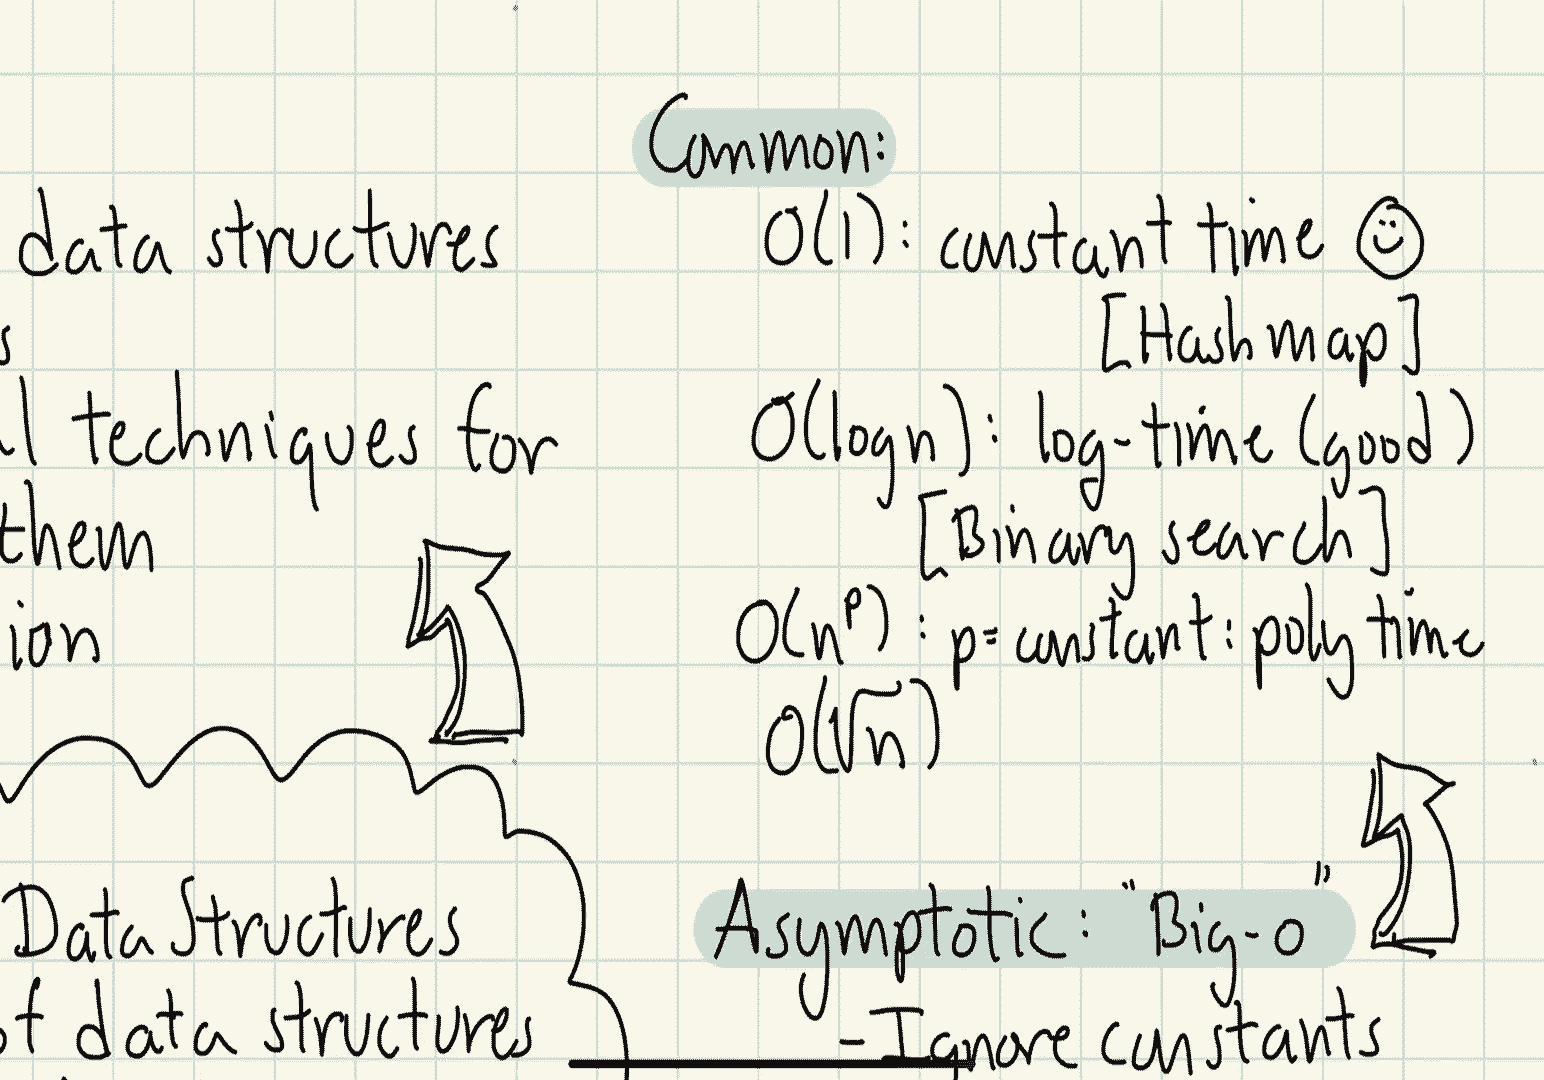 data structures
techniques for
them
Data Structures
of data structures
Common:
O(1): constant time
[Hashmap]
O(log n): log-time (good)
[Binary search]
O(n^p): p=constant: poly time
O(√n)
Asymptotic: "Big-O"
-Ignore constants